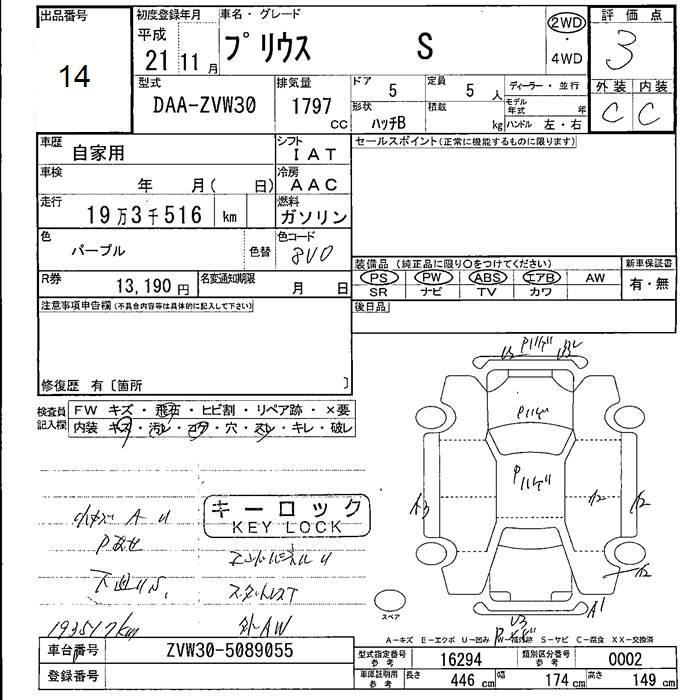 出品番号
14
初度登録年月
平成
21年11月
車名・グレード
プリウス S
2WD
・
4WD
評価点
3
外装 内装
C C
型式
DAA-ZVW30
排気量
1797
CC
ドア
5
定員
5人
形状
ハッチB
積載
kg
ディーラー・並行
モデル年式 年
ハンドル 左・右
車歴
自家用
シフト
IAT
車検
年 月( 日)
冷房
AAC
走行
19万3千516 km
燃料
ガソリン
色
パープル
色替
色コード
8V0
R券
13,190円
名変通知期限
月 日
セールスポイント(正常に機能するものに限ります)
装備品(純正品に限り○をつけてください)
PS PW ABS エアB AW
SR ナビ TV カワ
新車保証書
有・無
後日品
注意事項申告欄(不具合内容等は具体的に記入して下さい)
修復歴 有〔箇所 〕
検査員
記入欄
FW キズ・飛石・ヒビ割・リペア跡・×要
内装 キズ・汚レ・コゲ・穴・スレ・キレ・破レ
キーロック
KEY LOCK
小キズ A U
下廻りS.
193517km
外AW
U3
A3
A1
U3
スペア
A-キズ E-エクボ U-凹み W-補修跡 S-サビ C-腐食 XX-交換済
車台番号
ZVW30-5089055
登録番号
型式指定番号
参考
16294
類別区分番号
参考
0002
車庫証明用
参考
長さ 446cm 幅 174cm 高さ 149cm